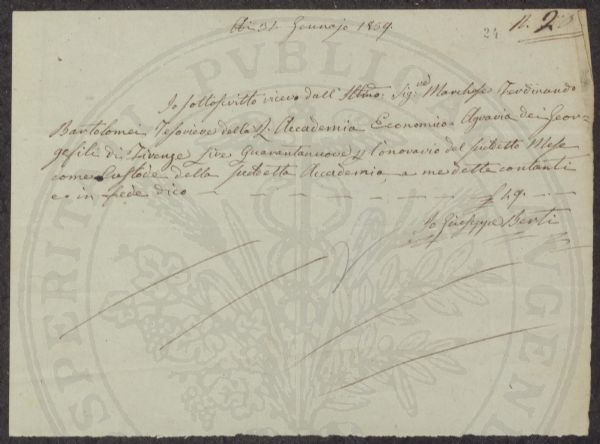 Adì 31. Gennajo 1859.
24 N. 2.
Io sottoscritto ricevo dall' Illmo: Sig:re Marchese Ferdinando
Bartolomei Tesoriere della R. Accademia Economico Agraria dei Geor-
gofili di Firenze Lire Quarantanuove p l'onorario del suddetto Mese
come Custode della suddetta Accademia, a me detta contanti
e in fede dico — £ 49. —
Io Giuseppe Berti
PUBLICAE
PROSPERITATI
AUGENDAE